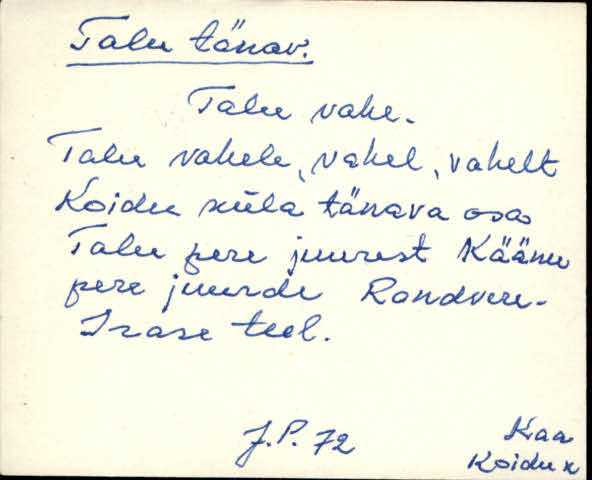 Talu tänav.
Talu vahe.
Talu vahele, vahel, vahelt
Koidu küla tänava osa
Talu pere juurest Käänu
pere juurde Randvere-
Irase teel.
J.P. 72
Kaa
Koidu k